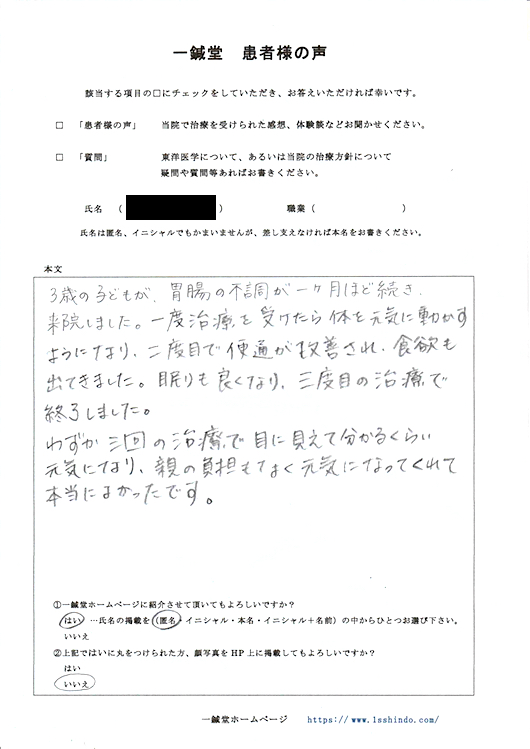 一鍼堂 患者様の声
該当する項目の□にチェックをしていただき、お答えいただければ幸いです。
□ 「患者様の声」 当院で治療を受けられた感想、体験談などお聞かせください。
□ 「質問」 東洋医学について、あるいは当院の治療方針について
疑問や質問等あればお書きください。
氏名 （ ） 職業（ ）
氏名は匿名、イニシャルでもかまいませんが、差し支えなければ本名をお書きください。
本文
3歳の子どもが、胃腸の不調が一ヶ月ほど続き、
来院しました。一度治療を受けたら体を元気に動かす
ようになり、二度目で便通が改善され、食欲も
出てきました。眠りも良くなり、三度目の治療で
終了しました。
わずか三回の治療で目に見えて分かるくらい
元気になり、親の負担もなく元気になってくれて
本当によかったです。
①一鍼堂ホームページに紹介させて頂いてもよろしいですか？
はい …氏名の掲載を（匿名・イニシャル・本名・イニシャル＋名前）の中からひとつお選び下さい。
いいえ
②上記ではいに丸をつけられた方、顔写真をHP上に掲載してもよろしいですか？
はい
いいえ
一鍼堂ホームページ https://www.1sshindo.com/